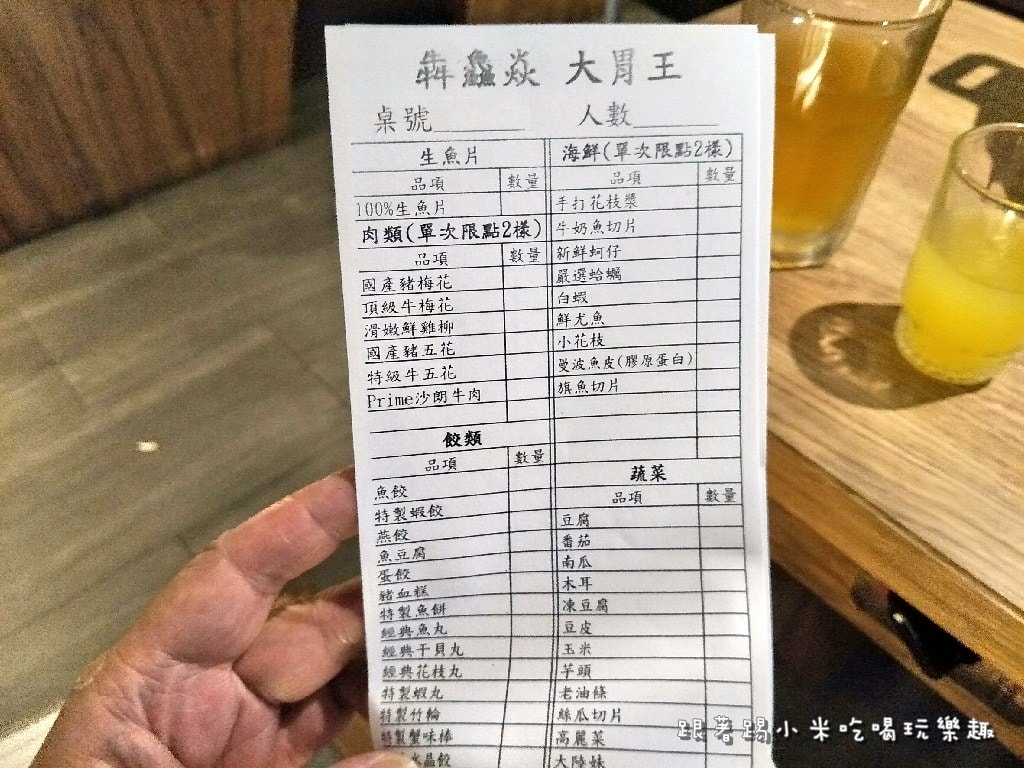 犇鱻焱 大胃王
桌號______ 人數______
生魚片
品項 數量
100%生魚片
肉類(單次限點2樣)
品項 數量
國產豬梅花
頂級牛梅花
滑嫩鮮雞柳
國產豬五花
特級牛五花
Prime沙朗牛肉
餃類
品項 數量
魚餃
特製蝦餃
燕餃
魚豆腐
蛋餃
豬血糕
特製魚餅
經典魚丸
經典干貝丸
經典花枝丸
特製蝦丸
特製竹輪
特製蟹味棒
水晶餃
海鮮(單次限點2樣)
品項 數量
手打花枝漿
牛奶魚切片
新鮮蚵仔
嚴選蛤蠣
白蝦
鮮尤魚
小花枝
曼波魚皮(膠原蛋白)
旗魚切片
蔬菜
品項 數量
豆腐
番茄
南瓜
木耳
凍豆腐
豆皮
玉米
芋頭
老油條
絲瓜切片
高麗菜
大陸妹
跟著踢小米吃喝玩樂趣